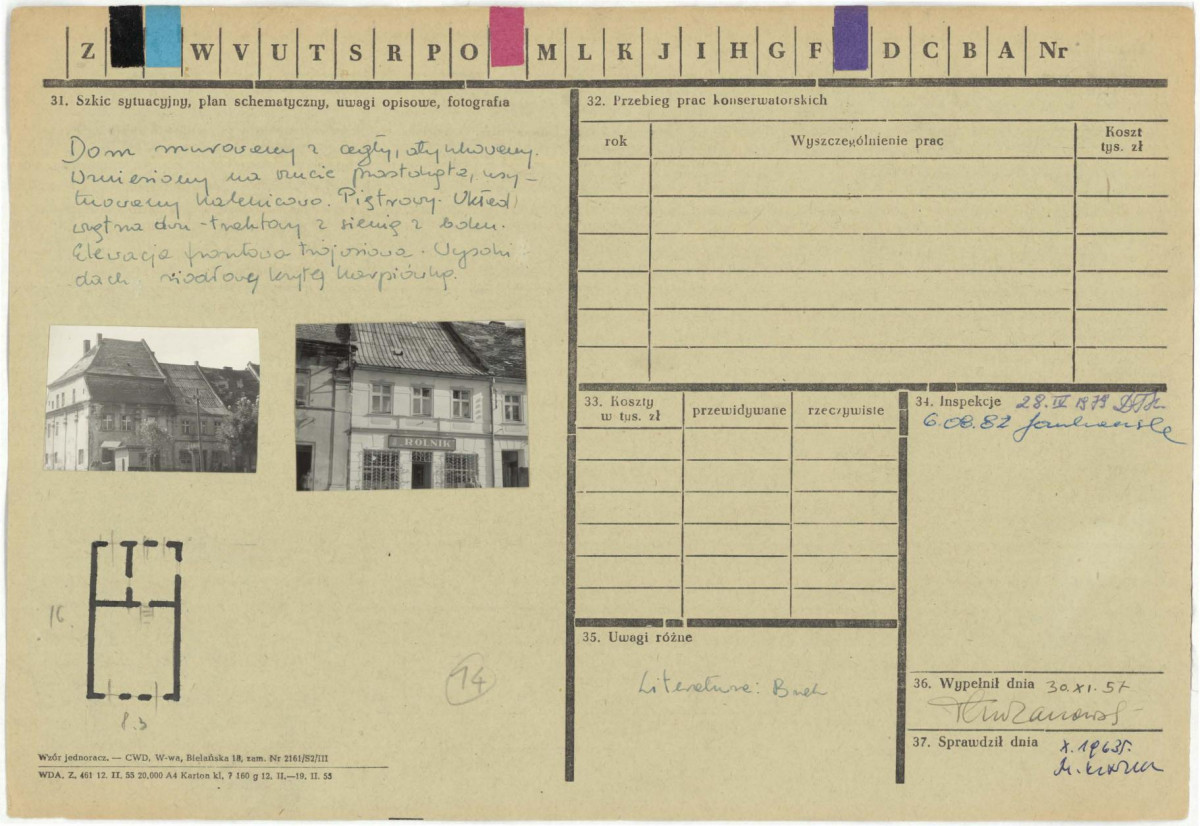 Z W V U T S R P O M L K J I H G F D C B A Nr
31. Szkic sytuacyjny, plan schematyczny, uwagi opisowe, fotografia
Dom murowany z cegły, otynkowany.
Wzniesiony na rzucie prostokąta, usy-
tuowany kalenicowo. Piętrowy. Układ
wnętrza dwu-traktowy z sienią z boku.
Elewacja frontowa trójosiowa. Wysoki
dach siodłowy kryty karpiówką.
ROLNIK
16
8.5
14
Wzór jednoracz. — CWD, W-wa, Bielańska 18, zam. Nr 2161/S2/III
WDA. Z. 461 12. II. 55 20,000 A4 Karton kl. 7 160 g 12. II.—19. II. 55
32. Przebieg prac konserwatorskich
rok
Wyszczególnienie prac
Koszt
tys. zł
33. Koszty
w tys. zł
przewidywane
rzeczywiste
34. Inspekcje 28. IV 1979
6.08.82
35. Uwagi różne
Literatura: Bach
36. Wypełnił dnia 30.XI.57
37. Sprawdził dnia X. 1963r.